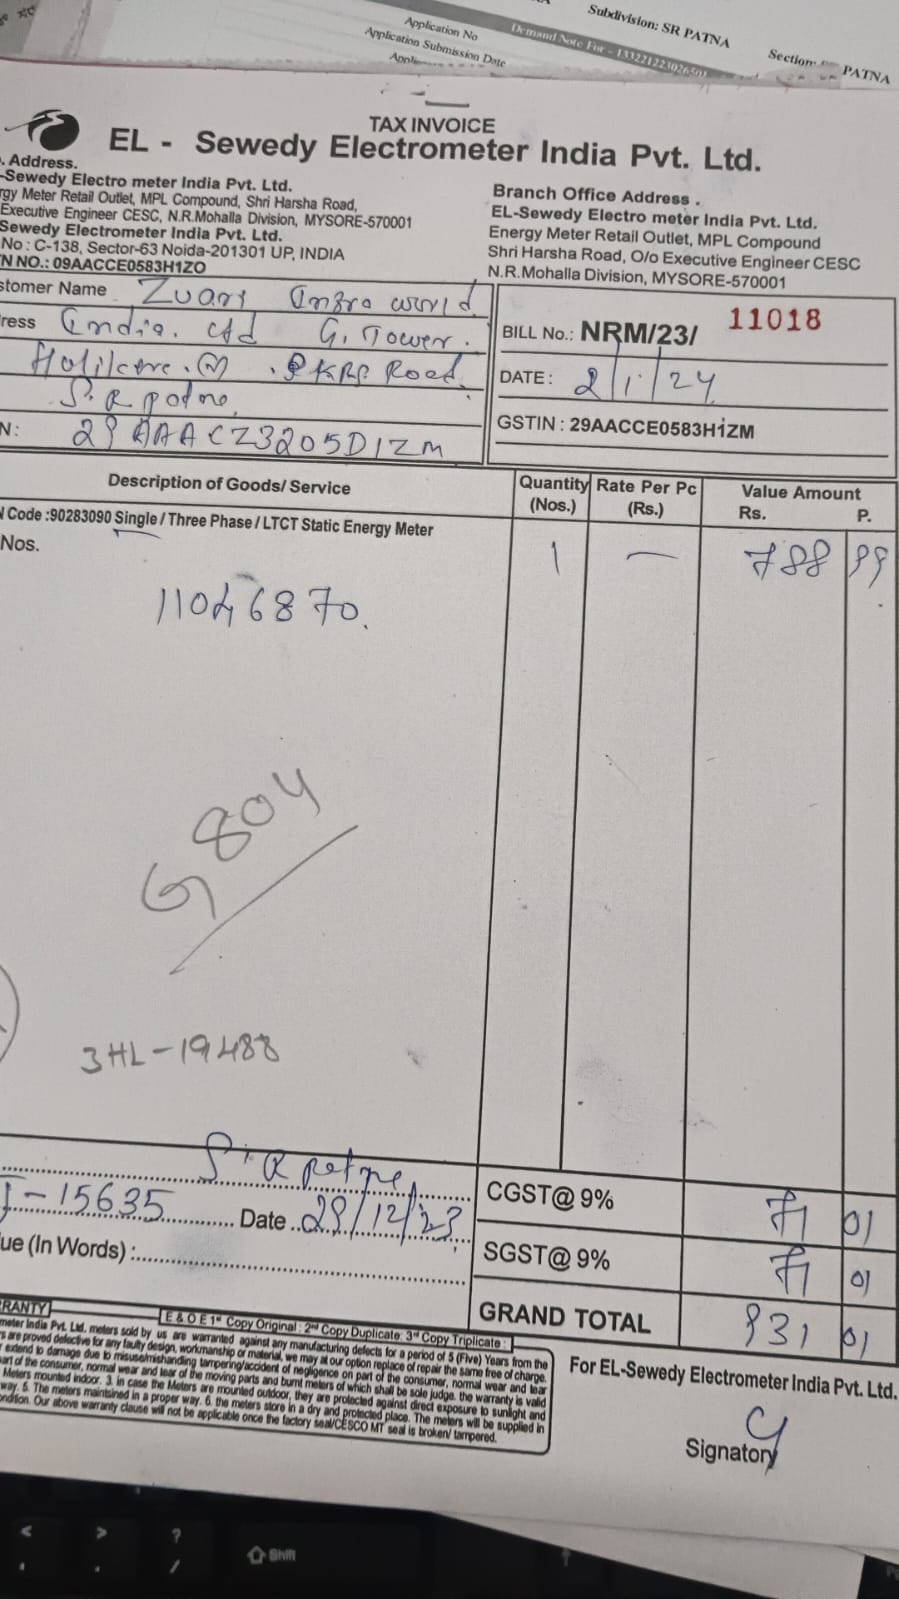 Subdivision: SR PATNA
Application No
Demand Note For - 1332212230265
Application Submission Date
Section:
PATNA
TAX INVOICE
EL - Sewedy Electrometer India Pvt. Ltd.
. Address.
-Sewedy Electro meter India Pvt. Ltd.
rgy Meter Retail Outlet, MPL Compound, Shri Harsha Road,
Executive Engineer CESC, N.R.Mohalla Division, MYSORE-570001
Sewedy Electrometer India Pvt. Ltd.
No : C-138, Sector-63 Noida-201301 UP, INDIA
N NO.: 09AACCE0583H1ZO
Branch Office Address .
EL-Sewedy Electro meter India Pvt. Ltd.
Energy Meter Retail Outlet, MPL Compound
Shri Harsha Road, O/o Executive Engineer CESC
N.R.Mohalla Division, MYSORE-570001
stomer Name Zuari Infra world
ress India. Ltd G. Tower.
KRS Road.
S.R patna
N: 29AAACZ3205D1ZM
BILL No.: NRM/23/ 11018
DATE: 2/1/24
GSTIN : 29AACCE0583H1ZM
Description of Goods/ Service
Quantity (Nos.)
Rate Per Pc (Rs.)
Value Amount
Rs. P.
Code :90283090 Single / Three Phase / LTCT Static Energy Meter
Nos.
1 — 788 99
11046870.
G 804
3HL-19488
S.R patna
-15635 Date 29/12/23
ue (In Words) :
CGST@ 9% 71 01
SGST@ 9% 71 01
GRAND TOTAL 931 01
E & O E 1st Copy Original : 2nd Copy Duplicate: 3rd Copy Triplicate :
RRANTY
meter India Pvt. Ltd. meters sold by us are warranted against any manufacturing defects for a period of 5 (Five) Years from the
s are proved defective for any faulty design, workmanship or material, we may at our option replace of repair the same free of charge.
extend to damage due to misuse/mishandling tampering/accident of negligence on part of the consumer, normal wear and tear
art of the consumer, normal wear and tear of the moving parts and burnt meters of which shall be sole judge. the warranty is valid
Meters mounted indoor. 3. in case the Meters are mounted outdoor, they are protected against direct exposure to sunlight and
way. 5. The meters maintained in a proper way. 6. the meters store in a dry and protected place. The meters will be supplied in
ondition. Our above warranty clause will not be applicable once the factory seal/CESCO MT seal is broken/ tampered.
For EL-Sewedy Electrometer India Pvt. Ltd.
Signatory
Shift